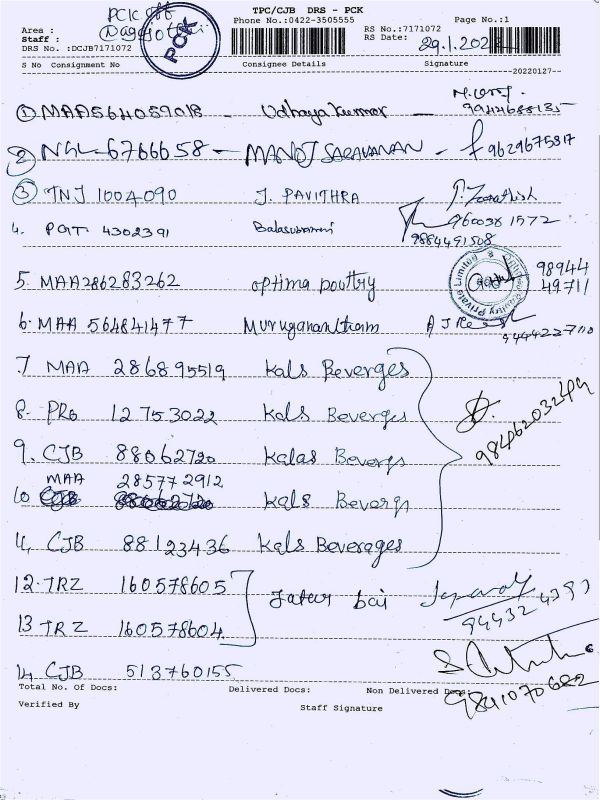 PCK
TPC/CJB DRS - PCK
Phone No.:0422-3505555 Page No.:1
Area :
Staff :
DRS No. :DCJB7171072
PCK
RS No.:7171072
RS Date: 29.1.202
S No Consignment No Consignee Details Signature
20220127
① MAA564059018 - Udhaya Kumar
9944688135
② NGL-6766658 - MANOJ SARAVANAN - 9629675817
③ TNJ 1004090 J. PAVITHRA
9600381572
4. 4302391
9884491508
5. MAA286283262 optima poultry 98944
49711
6. MAA 564841477 Muruganantham
7. MAA 286895519 Kals Beverges
8. PRO 12753022 Kals Beverges
9846203249
9. CJB 88062720 Kalas Beverges
MAA 285772912
10 Kals Beverges
11, CJB 88123436 Kals Beverages
12. TRZ 160578605
13 TRZ 160578604
94432
14 CJB 513760155
Total No. Of Docs: Delivered Docs: Non Delivered Docs:
9841070682
Verified By Staff Signature